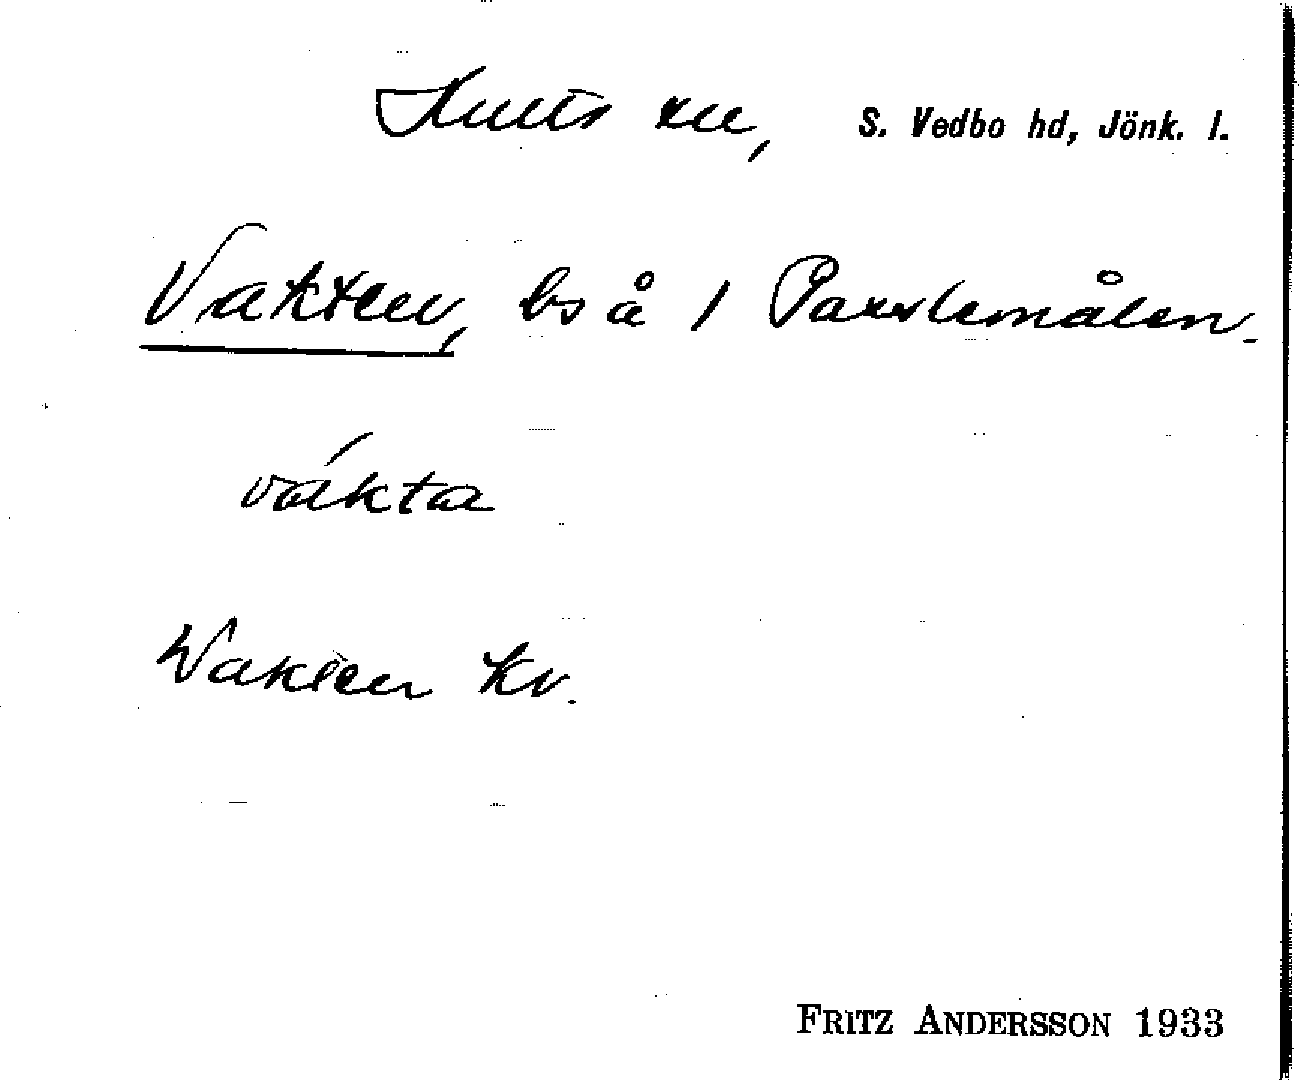 Hults sn, S. Vedbo hd, Jönk. l.
Vakten, bs å 1 Parslemålen.
vákta
Wakten Kv.
FRITZ ANDERSSON 1933